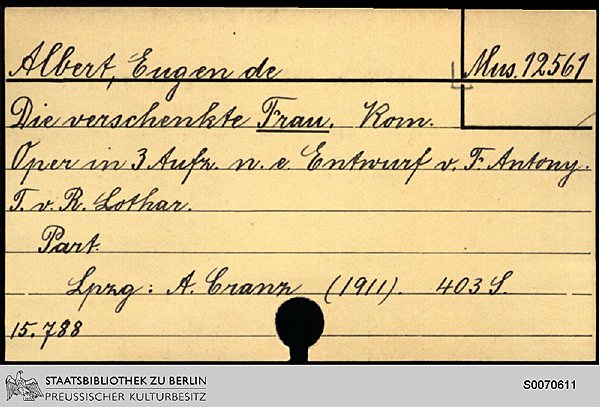 Albert, Eugen de
Mus. 12561
Die verschenkte Frau. Kom.
Oper in 3 Aufz. n. e. Entwurf v. F. Antony.
T. v. R. Lothar.
Part.
Lpzg: A. Cranz (1911). 403 S.
15.788
STAATSBIBLIOTHEK ZU BERLIN
PREUSSISCHER KULTURBESITZ
S0070611